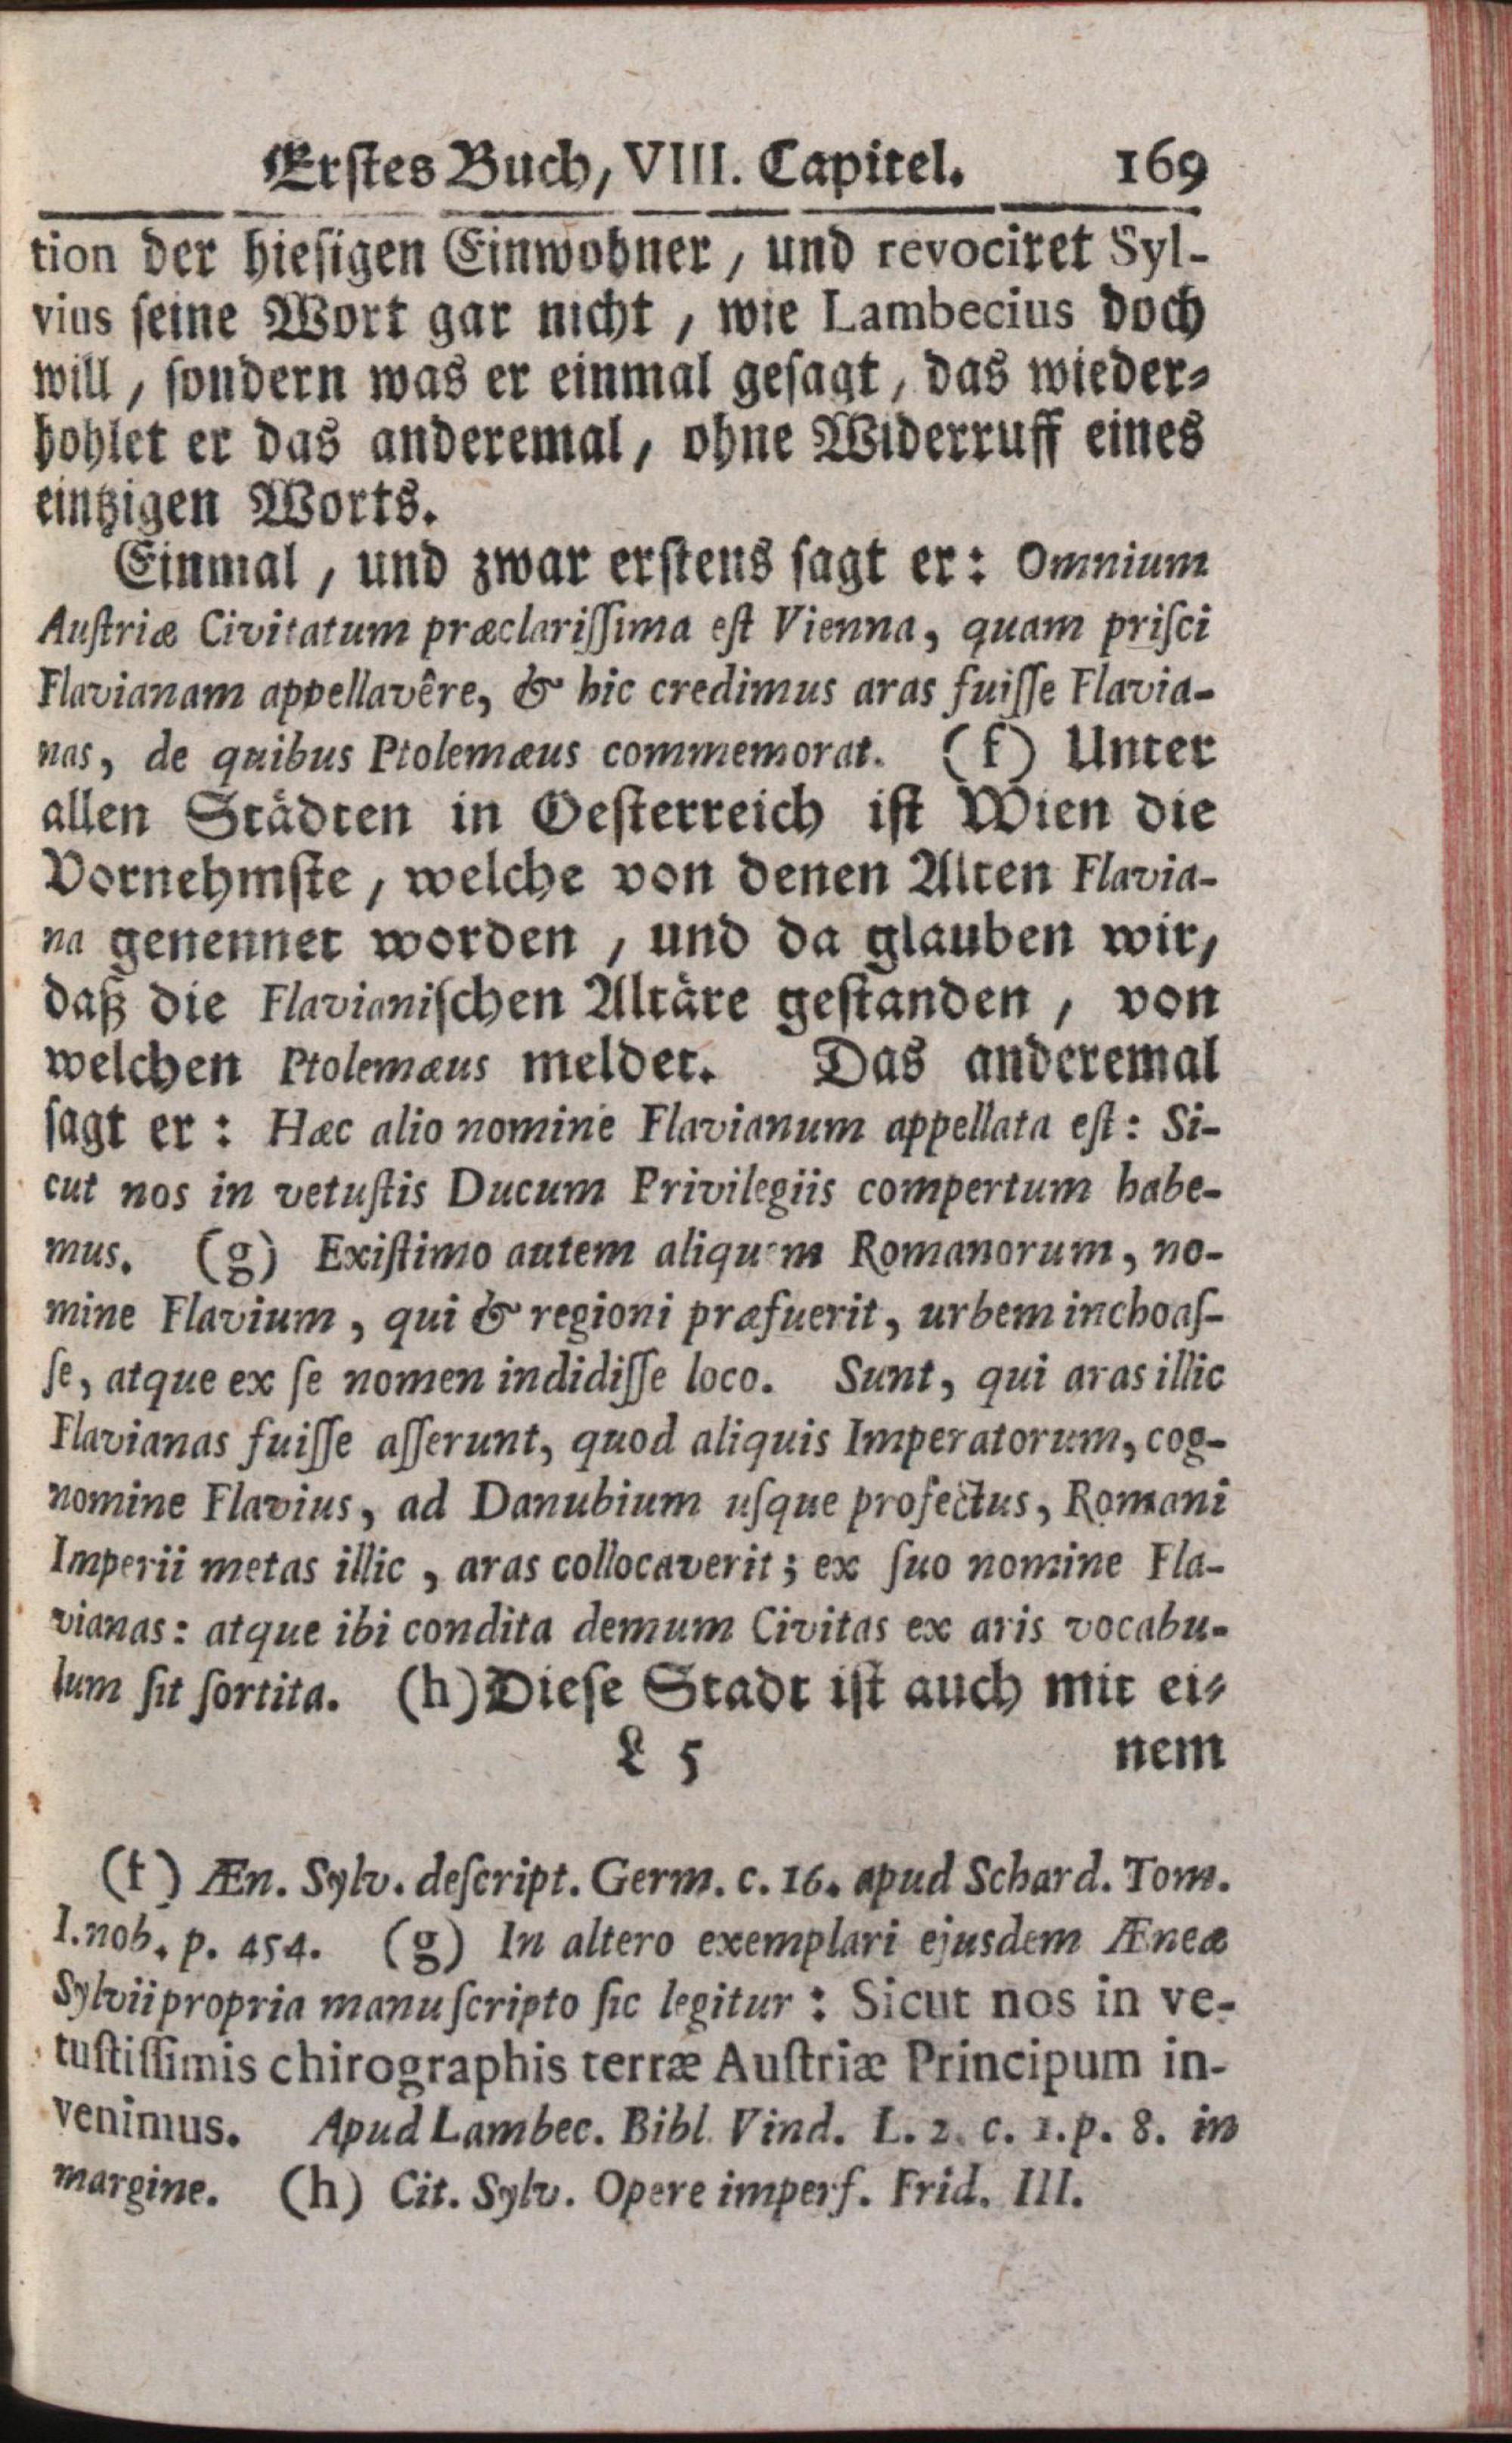 Erstes Buch, VIII. Capitel. 169
tion der hiesigen Einwohner, und revociret Syl-
vius seine Wort gar nicht, wie Lambecius doch
will, sondern was er einmal gesagt, das wieder-
hohlet er das anderemal, ohne Widerruff eines
eintzigen Worts.
Einmal, und zwar erstens sagt er: Omnium
Auſtriæ Civitatum præclariſſima eſt Vienna, quam priſci
Flavianam appellavêre, & hic credimus aras fuiſſe Flavia-
nas, de quibus Ptolemæus commemorat. (f) Unter
allen Städten in Oesterreich ist Wien die
Vornehmste, welche von denen Alten Flavia-
na genennet worden, und da glauben wir,
daß die Flavianischen Altäre gestanden, von
welchen Ptolemæus meldet. Das anderemal
sagt er: Hæc alio nomine Flavianum appellata eſt: Si-
cut nos in vetuſtis Ducum Privilegiis compertum habe-
mus. (g) Exiſtimo autem aliquem Romanorum, no-
mine Flavium, qui & regioni præfuerit, urbem inchoaſ-
ſe, atque ex ſe nomen indidiſſe loco. Sunt, qui aras illic
Flavianas fuiſſe aſſerunt, quod aliquis Imperatorum, cog-
nomine Flavius, ad Danubium uſque profectus, Romani
Imperii metas illic, aras collocaverit; ex ſuo nomine Fla-
vianas: atque ibi condita demum Civitas ex aris vocabu-
lum ſit ſortita. (h) Diese Stadt ist auch mit ei-
L 5 nem
(f) Æn. Sylv. deſcript. Germ. c. 16. apud Schard. Tom.
I. nob. p. 454. (g) In altero exemplari ejusdem Æneæ
Sylvii propria manu ſcripto ſic legitur: Sicut nos in ve-
tuſtiſſimis chirographis terræ Auſtriæ Principum in-
venimus. Apud Lambec. Bibl. Vind. L. 2. c. 1. p. 8. in
margine. (h) Cit. Sylv. Opere imperf. Frid. III.